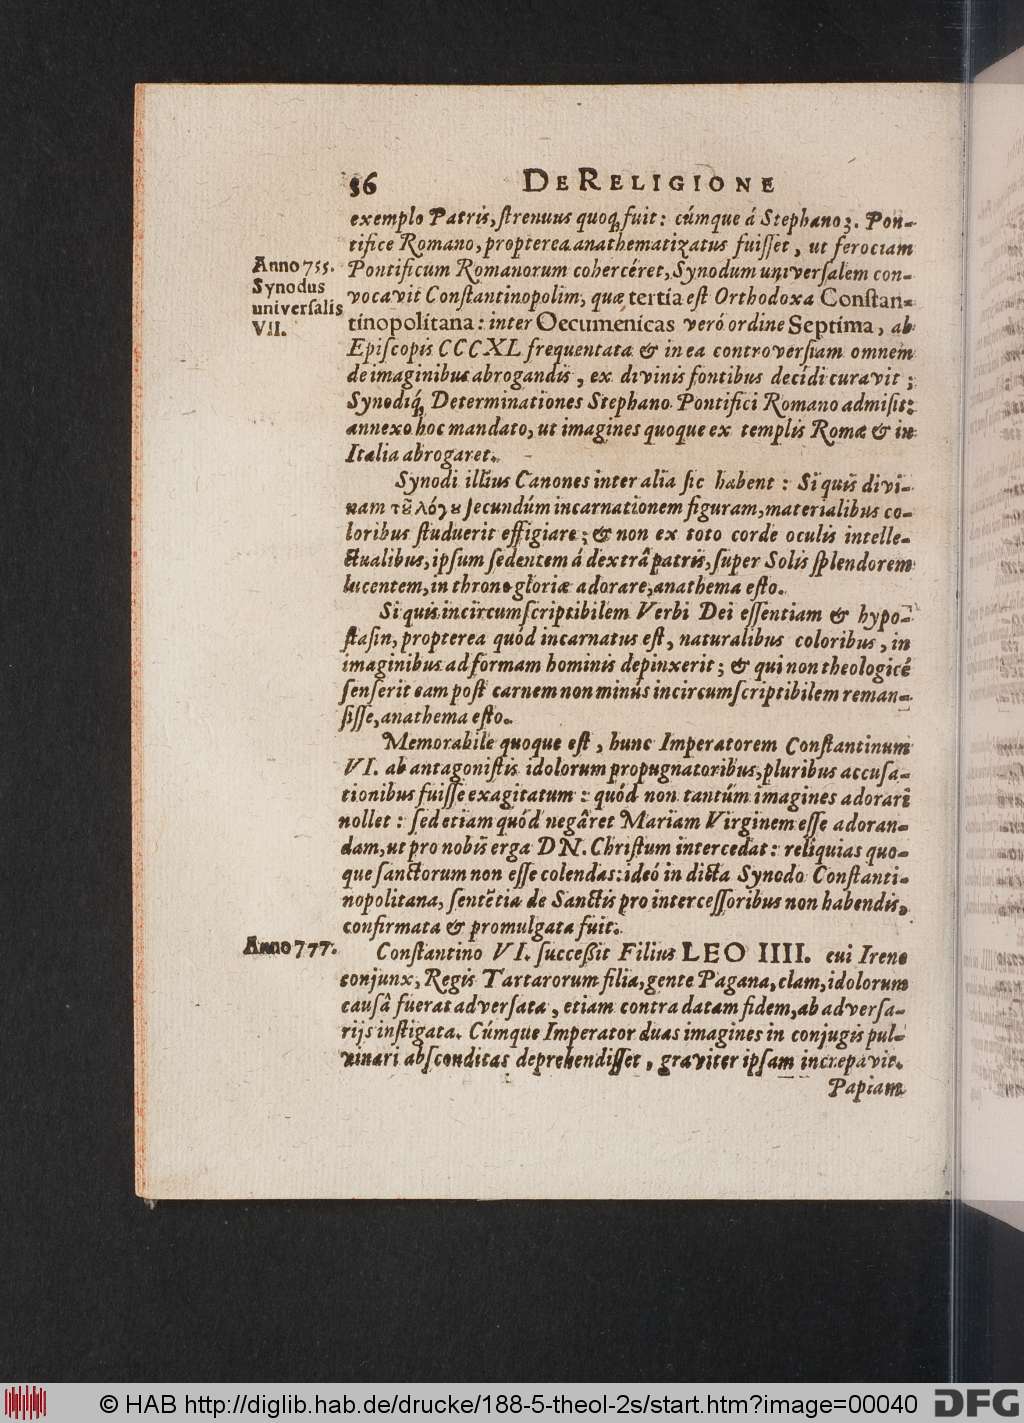 36 DE RELIGIONE
exemplo Patris, ſtrenuus quoq; fuit: cúmque á Stephano 3. Pon-
tifice Romano, propterea anathematizatus fuiſſet, ut ferociam
Anno 755. Pontificum Romanorum coherceret, Synodum univerſalem con-
Synodus
vocavit Conſtantinopolim, quæ tertia eſt Orthodoxa Conſtan-
univerſalis
tinopolitana: inter Oecumenicas veró ordine Septima, ab
VII.
Epiſcopis CCCXL frequentata & in ea controverſiam omnem
de imaginibus abrogandis, ex divinis fontibus decidi curavit;
Synodiq́; Determinationes Stephano Pontifici Romano admiſit:
annexo hoc mandato, ut imagines quoque ex templis Romæ & in
Italia abrogaret.
Synodi illius Canones inter alia ſic habent: Si quis divi-
nam τȣ͂ λόγȣ ſecundúm incarnationem figuram, materialibus co-
loribus ſtuduerit effigiare; & non ex toto corde oculis intelle-
ctualibus, ipſum ſedentem á dextrâ patris, ſuper Solis ſplendorem
lucentem, in throno gloriæ adorare, anathema eſto.
Si quis incircumſcriptibilem Verbi Dei eſſentiam & hypo-
ſtaſin, propterea quód incarnatus eſt, naturalibus coloribus, in
imaginibus ad formam hominis depinxerit; & qui non theologicé
ſenſerit eam poſt carnem non minús incircumſcriptibilem reman-
ſiſſe, anathema eſto.
Memorabile quoque eſt, hunc Imperatorem Conſtantinum
VI. ab antagoniſtis idolorum propugnatoribus, pluribus accuſa-
tionibus fuiſſe exagitatum: quód non tantúm imagines adorari
nollet: ſed etiam quód negâret Mariam Virginem eſſe adoran-
dam, ut pro nobis erga DN. Chriſtum intercedat: reliquias quo-
que ſanctorum non eſſe colendas: ideó in dicta Synodo Conſtanti-
nopolitana, ſentẽtia de Sanctis pro interceſſoribus non habendis,
confirmata & promulgata fuit.
Anno 777. Conſtantino VI. ſucceſsit Filius LEO IIII. cui Irene
conjunx, Regis Tartarorum filia, gente Pagana, clam, idolorum
cauſâ fuerat adverſata, etiam contra datam fidem, ab adverſa-
rijs inſtigata. Cúmque Imperator duas imagines in conjugis pul-
vinari abſconditas deprehendiſſet, graviter ipſam increpavit.
Papiam
© HAB http://diglib.hab.de/drucke/188-5-theol-2s/start.htm?image=00040 DFG